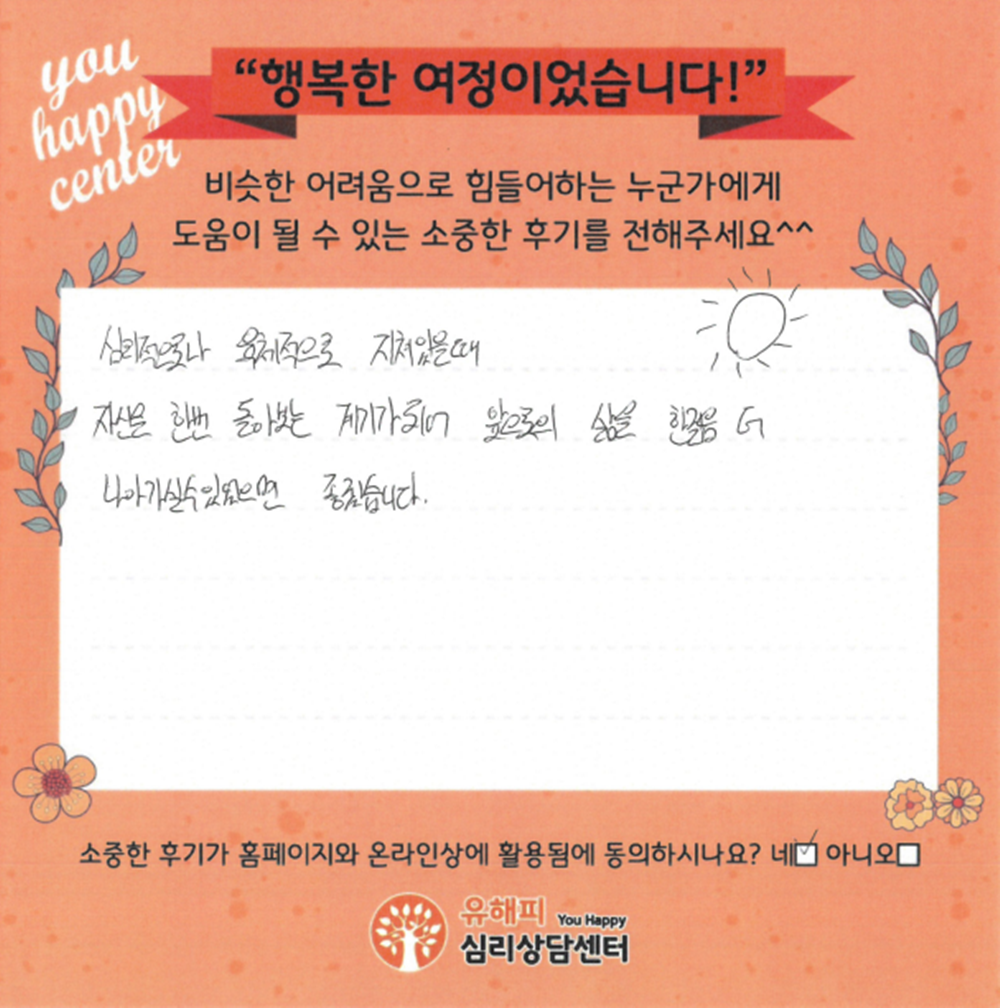 you
happy
center
“행복한 여정이었습니다!”
비슷한 어려움으로 힘들어하는 누군가에게
도움이 될 수 있는 소중한 후기를 전해주세요^^
심리적으로나 육체적으로 지쳐있을때
자신을 한번 돌아보는 계기가 되어 앞으로의 삶을 한걸음 더
나아가실수있었으면 좋겠습니다.
소중한 후기가 홈페이지와 온라인상에 활용됨에 동의하시나요? 네 아니오
유해피 You Happy
심리상담센터